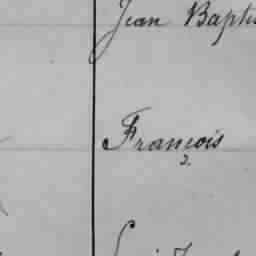 Jean Baptis
François